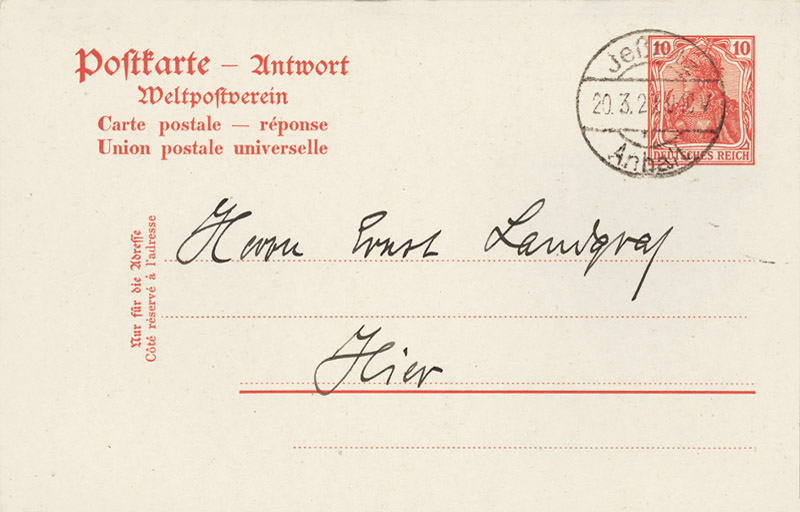 Postkarte – Antwort
Weltpostverein
Carte postale — réponse
Union postale universelle
10 10
DEUTSCHES REICH
20.3.2
Anhalt
Nur für die Adresse
Côté réservé à l'adresse
Herrn Ernst Landgraf
Hier